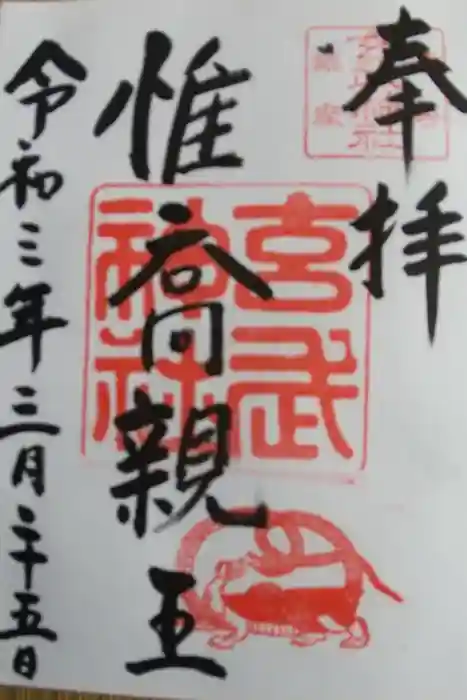 奉拝
惟喬親王
玄武神社
令和三年三月二十五日